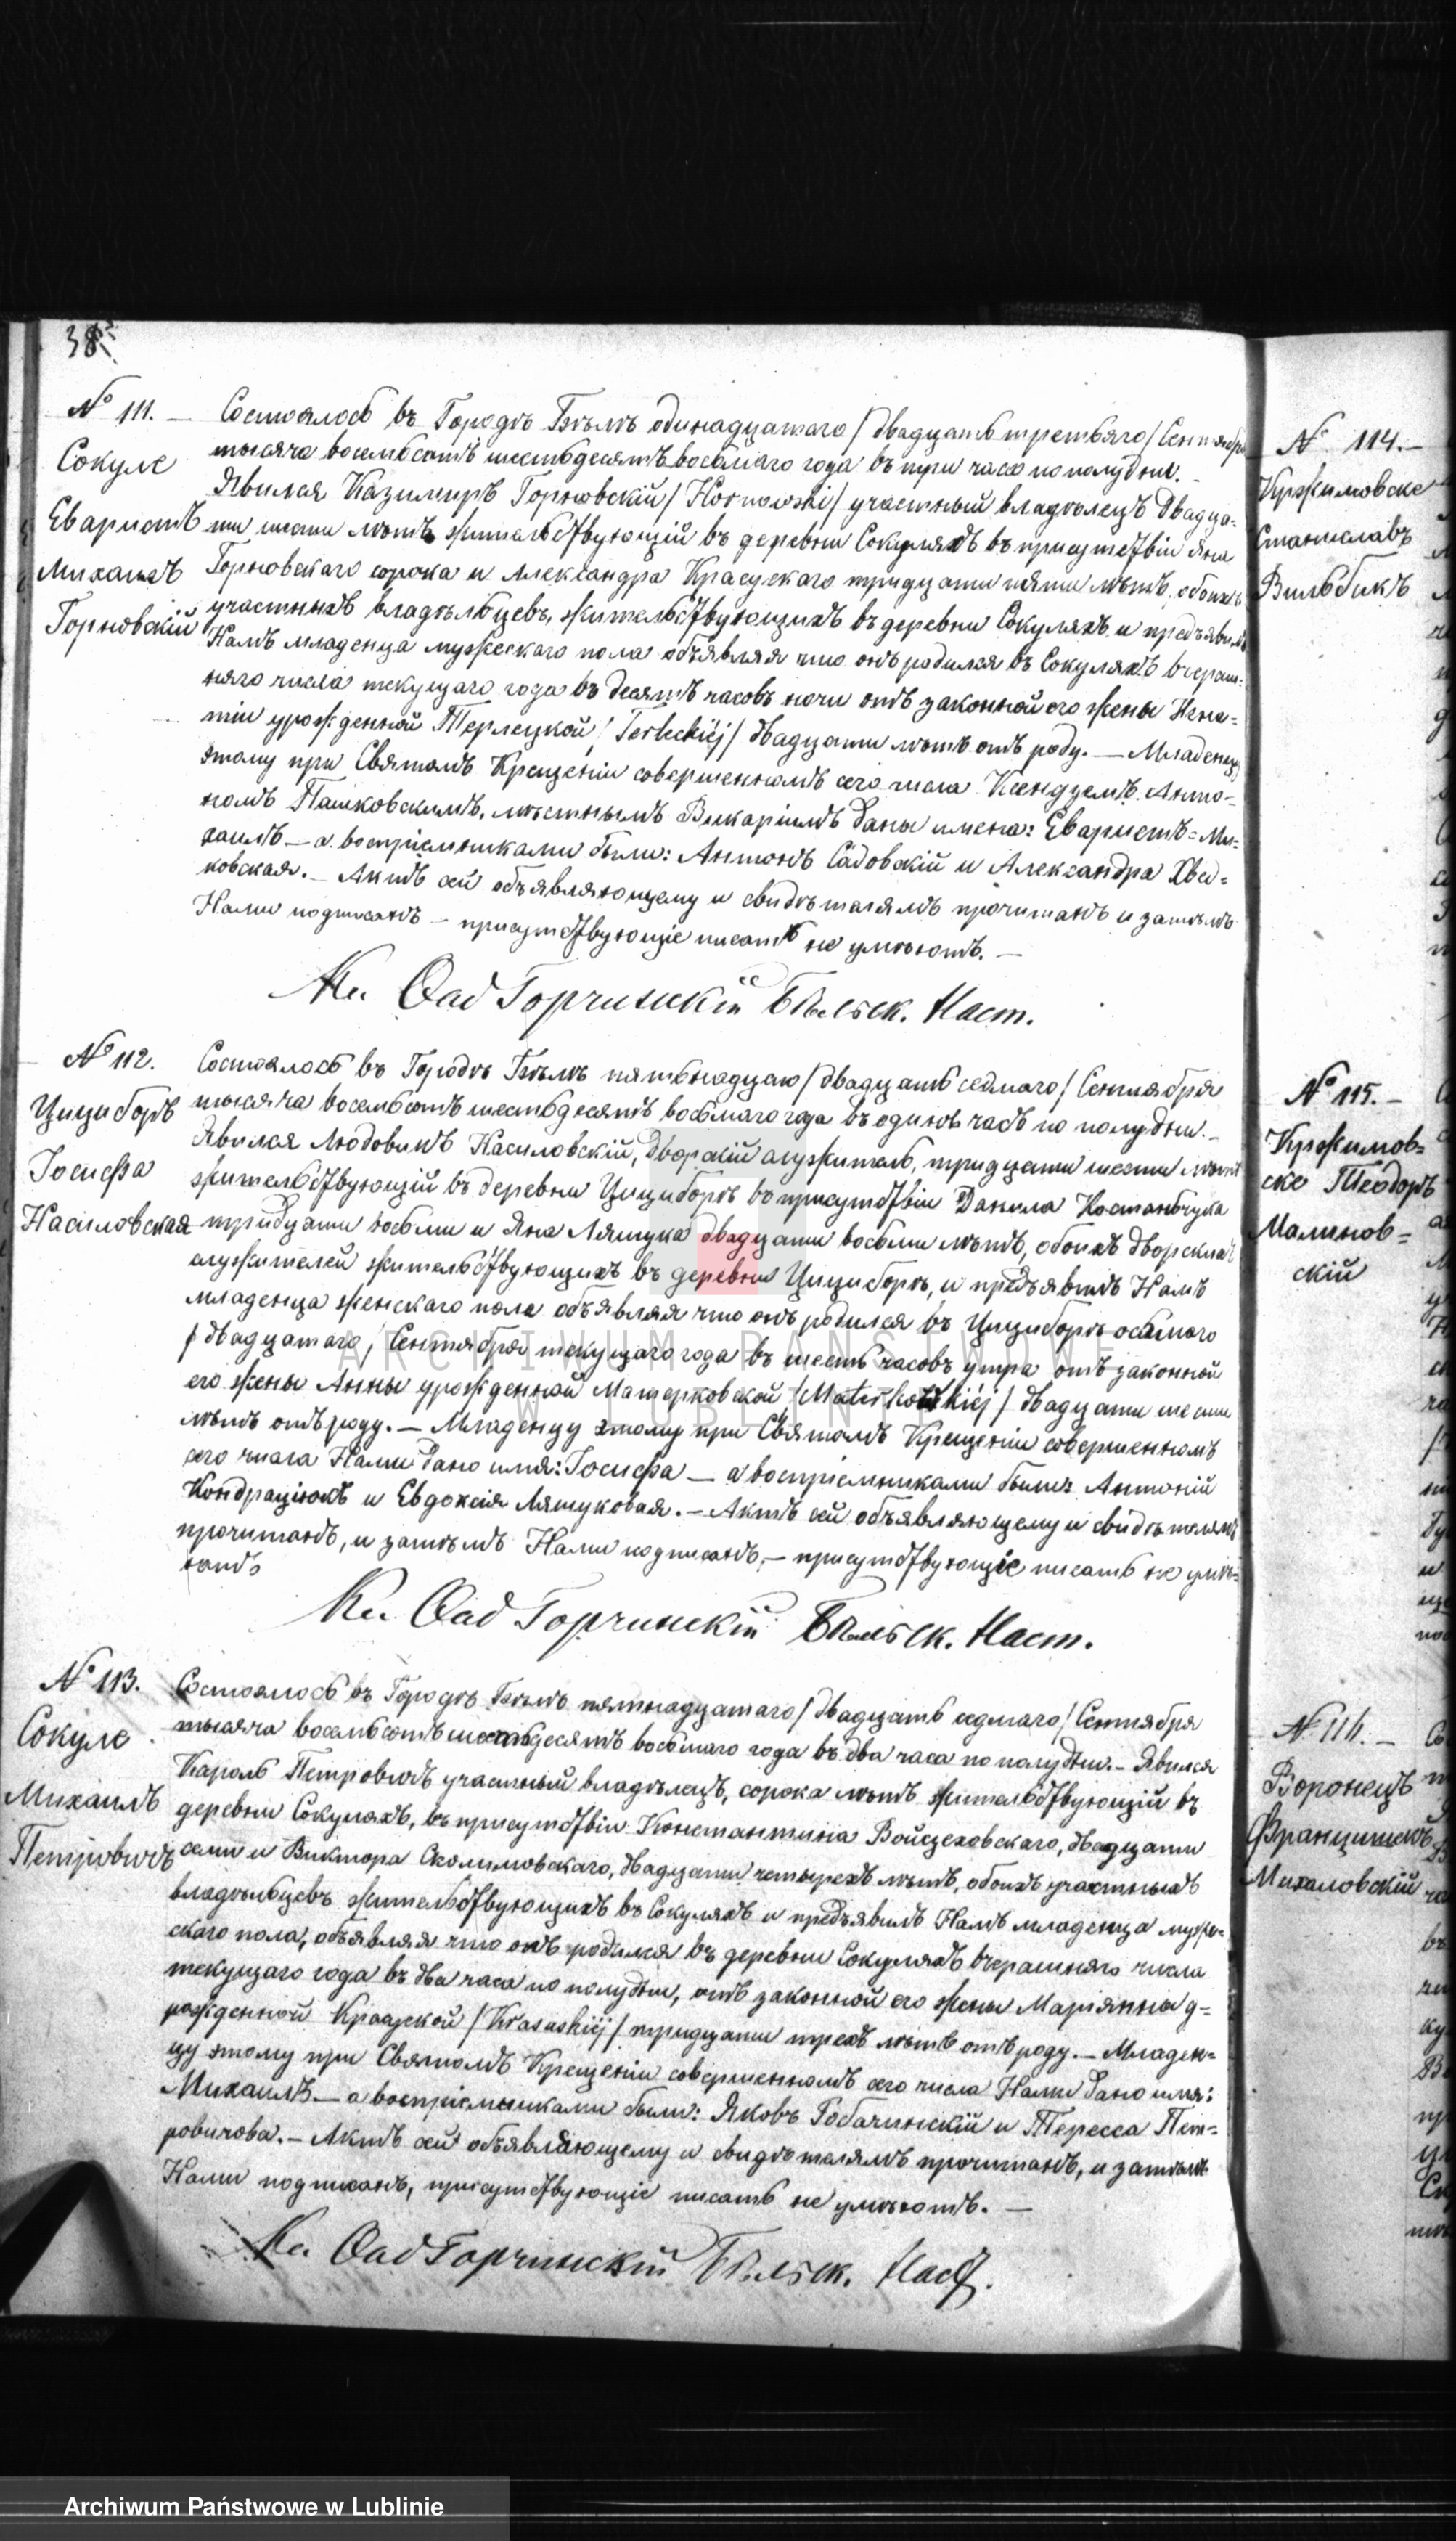 38
№ 111. —
Сокуле
Еваристъ
Михаилъ
Горновскій
Состоялось въ Городѣ Бѣлѣ одинадцатаго / двадцать третьяго / Сентября
тысяча восемьсотъ шестьдесятъ восьмаго года въ три часа по полудни. —
Явился Казимиръ Горновскій / Hornowski / участный владѣлецъ двадца-
ти шести лѣтъ жительствующій въ деревни Сокуляхъ въ присутствіи Яна
Горновскаго сорока и Александра Красускаго тридцати пяти лѣтъ, обоихъ
участныхъ владѣльцевъ, жительствующихъ въ деревни Сокуляхъ и предъявилъ
Намъ младенца мужескаго пола объявляя что онъ родился въ Сокуляхъ вчераш-
няго числа текущаго года въ десять часовъ ночи отъ законной его жены
урожденной Терлецкой / Terleckiéj / двадцати лѣтъ отъ роду. — Младенцу
этому при Святомъ Крещеніи совершенномъ сего числа Ксендземъ Анто-
номъ Пашковскимъ, мѣстнымъ Викаріемъ даны имена: Еваристъ-Ми-
хаилъ — а воспріемниками были: Антонъ Садовскій и Александра
ковская. — Актъ сей объявляющему и свидѣтелямъ прочитанъ и затѣмъ
Нами подписанъ — присутствующіе писать не умѣютъ. —
Кс. Горчинскій Бѣльск. Наст.
№ 112.
Цициборъ
Іосифа
Насиловская
Состоялось въ Городѣ Бѣлѣ пятьнадцаго / двадцать седмаго / Сентября
тысяча восемьсотъ шестьдесятъ восьмаго года въ одинъ часъ по полудни. —
Явился Людовикъ Насиловскій, дворскій служитель, тридцати шести лѣтъ
жительствующій въ деревни Цициборѣ въ присутствіи Данила Костанбчука
тридцати восьми и Яна Ляшука двадцати восьми лѣтъ, обоихъ дворскихъ
служителей жительствующихъ въ деревни Цициборѣ, и предъявилъ Намъ
младенца женскаго пола объявляя что онъ родился въ Цициборѣ осьмаго
/ двадцатаго / Сентября текущаго года въ шесть часовъ утра отъ законной
его жены Анны урожденной Матерковской / Materkowskiéj / двадцати шести
лѣтъ отъ роду. — Младенцу этому при Святомъ Крещеніи совершенномъ
сего числа Нами дано имя: Іосифа — а воспріемниками были: Антоній
Кондрацюкъ и Евдоксія Ляшуковая. — Актъ сей объявляющему и свидѣтелямъ
прочитанъ, и затѣмъ Нами подписанъ, — присутствующіе писать не умѣ-
ютъ
Кс. Горчинскій Бѣльск. Наст.
№ 113.
Сокуле
Михаилъ
Петровичъ
Состоялось въ Городѣ Бѣлѣ пятнадцатаго / двадцать седмаго / Сентября
тысяча восемьсотъ шестьдесятъ восьмаго года въ два часа по полудни. — Явился
Кароль Петровичъ участный владѣлецъ, сорока лѣтъ жительствующій въ
деревни Сокуляхъ, въ присутствіи Константина Войцеховскаго, двадцати
семи и Виктора Сколимовскаго, двадцати четырехъ лѣтъ, обоихъ участныхъ
владѣльцевъ жительствующихъ въ Сокуляхъ и предъявилъ Намъ младенца муже-
скаго пола, объявляя что онъ родился въ деревни Сокуляхъ вчерашняго числа
текущаго года въ два часа по полудни, отъ законной его жены Маріянны у-
рожденной Красуской / Krasuskiéj / тридцати трехъ лѣтъ отъ роду. — Младен-
цу этому при Святомъ Крещеніи совершенномъ сего числа Нами дано имя:
Михаилъ — а воспріемниками были: Яковъ Гобачинскій и Тересса Пет-
ровичова. — Актъ сей объявляющему и свидѣтелямъ прочитанъ, и затѣмъ
Нами подписанъ, присутствующіе писать не умѣютъ. —
Кс. Горчинскій Бѣльск. Наст.
№ 114. —
Кржимовске
Станиславъ
Вильбикъ
№ 115. —
Кржимов-
ске Теодоръ
Малинов-
скій
№ 116. —
Воронецъ
Францишекъ
Михаловскій
ARCHIWUM PAŃSTWOWE
W LUBLINIE
Archiwum Państwowe w Lublinie